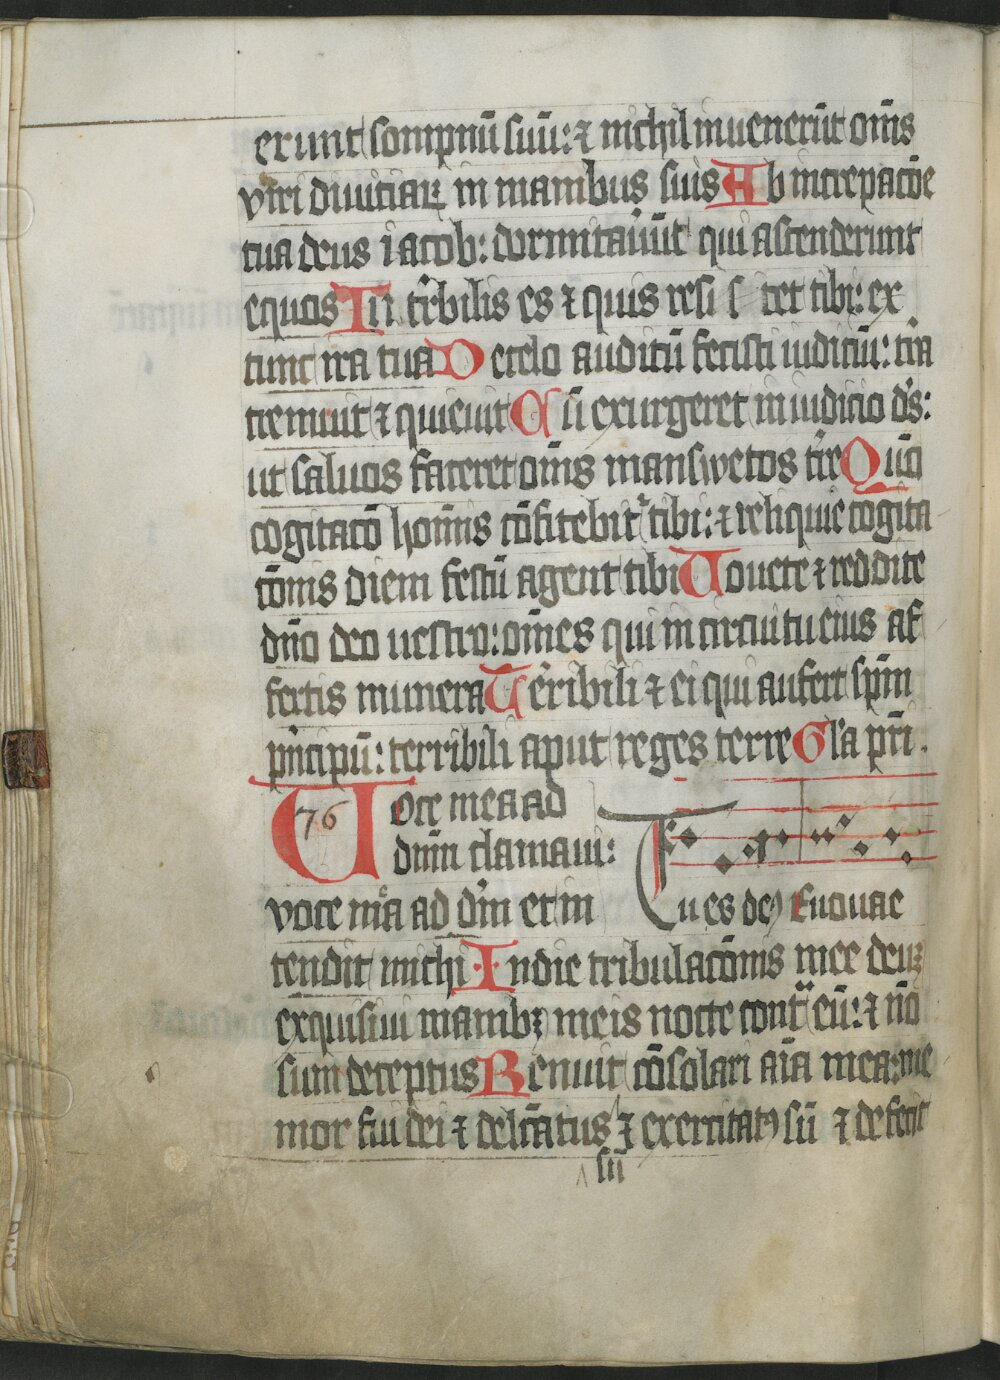 erunt sompnū suū: ⁊ nichil inuenerūt om̄s
viri diuiciaꝝ in manibus suis Ab increpacōe
tua deus iacob: dormitauūt qui ascenderunt
equos Tu tͥbilis es ⁊ quis resi s tet tibi: ex
tunc ira tua De celo auditū fecisti iudiciū: tͥra
tremuit ⁊ quieuit Cū exurgeret in iudicio dˢs:
ut saluos faceret om̄s manswetos tͥre Qm̄
cogitacō hom̄is cōfitebitᷣ tibi: ⁊ reliquie cogita
cōnis diem festū agent tibi Uouete ⁊ reddite
dn̄o deo uestro: om̄es qui in circuitu eius af
fertis munera Teribili ⁊ ei qui aufert sp̄m
pͥncipū: terribili aput reges terre Gl̄a pr̄i.
76 Uoce mea ad
dn̄m clamaui:
voce mͣa ad dm̄ et in
Tu es deꝰ Euouae
tendit michi In die tribulacōnis mee deuꝫ
exquisiui manibꝫ meis nocte contᷓ eū: ⁊ nō
sum deceptus Renuit cōsolari aīa mea: me
mor fui dei ⁊ delct̄atus ⁊ exercitatꝰ sū ⁊ defecit
sū